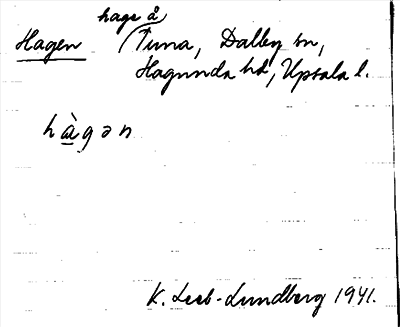 hage å
Hagen (Tuna, Dalby sn,
Hagunda hd, Upsala l.
hàgən
K. Leeb-Lundberg 1941.